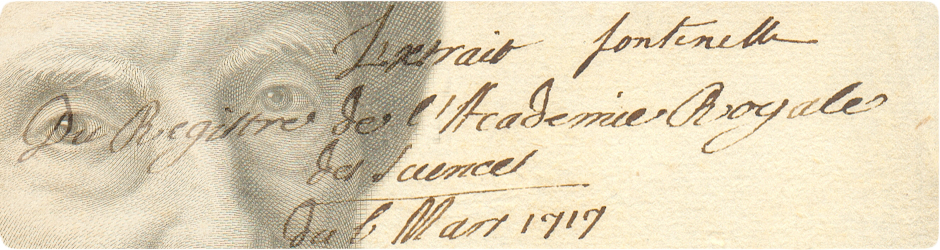 Extrait fontenelle
Du Registre de l'Academie Royale
des Sciences
du 6 Mars 1717